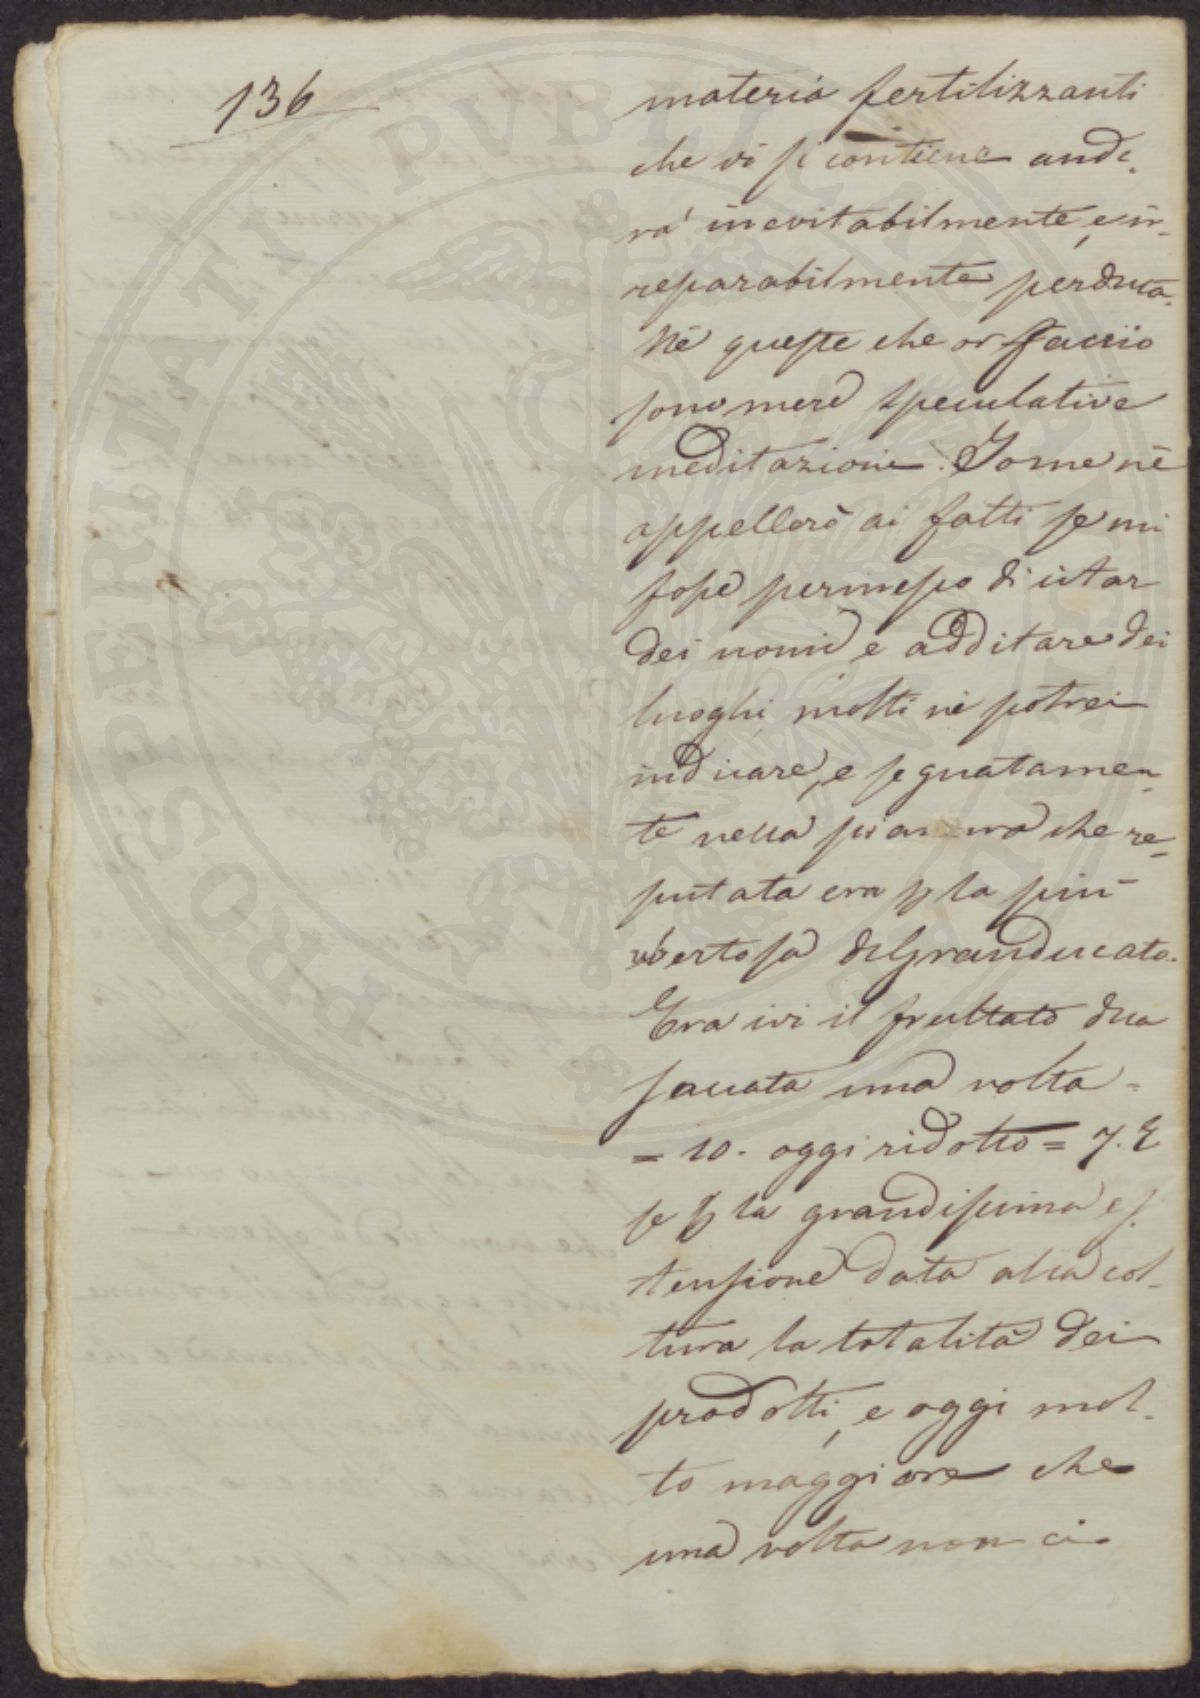 136
materia fertilizzanti
che vi si contiene ande,
rà inevitabilmente, e ir-
reparabilmente perduta.
Nè queste che or faccio
sono mere speculative
meditazioni. Io me nè
appellerò ai fatti se mi
fosse permesso di citar
dei nomi e additare dei
luoghi, molti nè potrei
indicare, e segnatamen-
te nella pianura che re-
putata era p la più
ubertosa del Granducato.
Era ivi il fruttato dua
saccata una volta =
= 10. oggi ridotto = 7. E
se p la grandissima es.
tensione data alla col-
tura la totalità dei
prodotti, e oggi mol-
to maggiore che
una volta non ci
PROSPERITATI PVBLICAE